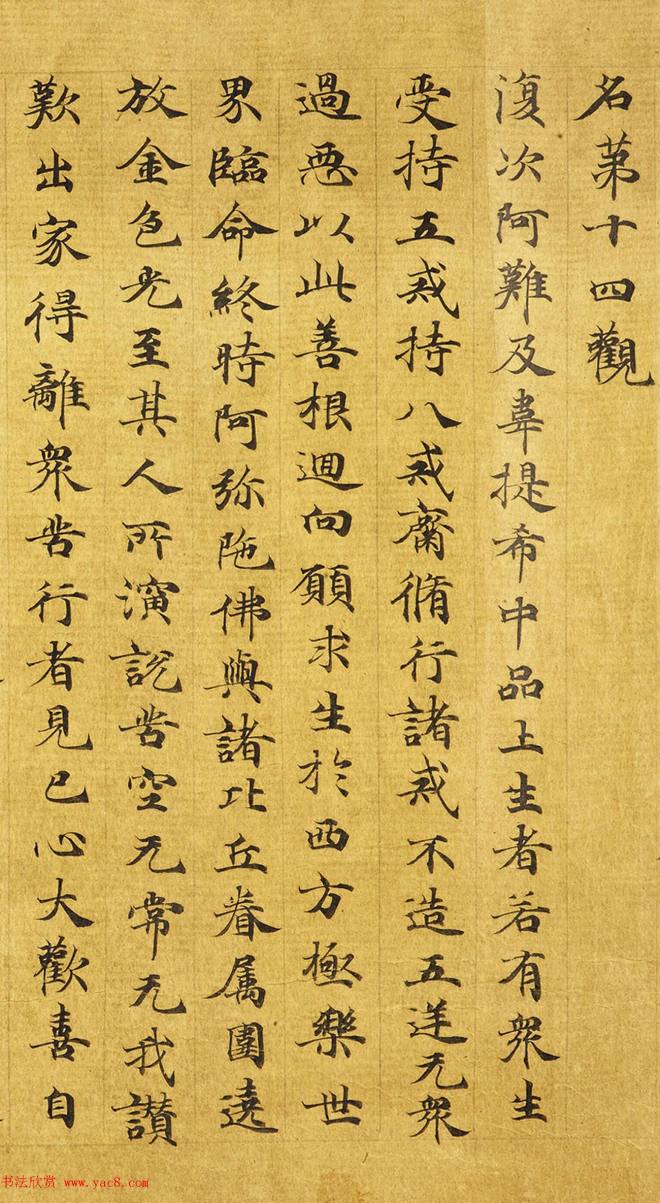 名苐十四觀
復次阿難及韋提希中品上生者若有衆生
受持五戒持八戒齋脩行諸戒不造五逆无衆
過惡以此善根迴向願求生於西方極樂世
界臨命終時阿弥陁佛與諸比丘眷属圍遶
放金色光至其人所演說苦空无常无我讃
歎出家得離衆苦行者見已心大歡喜自
书法欣赏 www.yac8.com